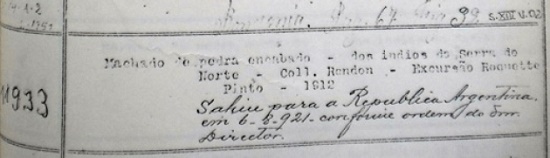 67 39 S.XIV V.02
Machado de pedra encabado - dos indios da Serra do
Norte - Coll. Rondon - Excursão Roquette
Pinto - 1912
11933
Sahiu para a Republica Argentina
em 6-8-921 - conforme ordem do Snr.
Director.